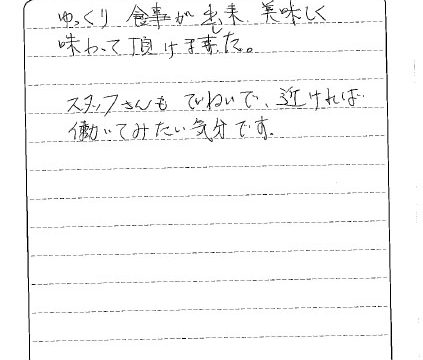 ゆっくり 食事が 出来 美味しく
味わって頂けました。
スタッフさんも ていねいで、近ければ
働いてみたい気分です。